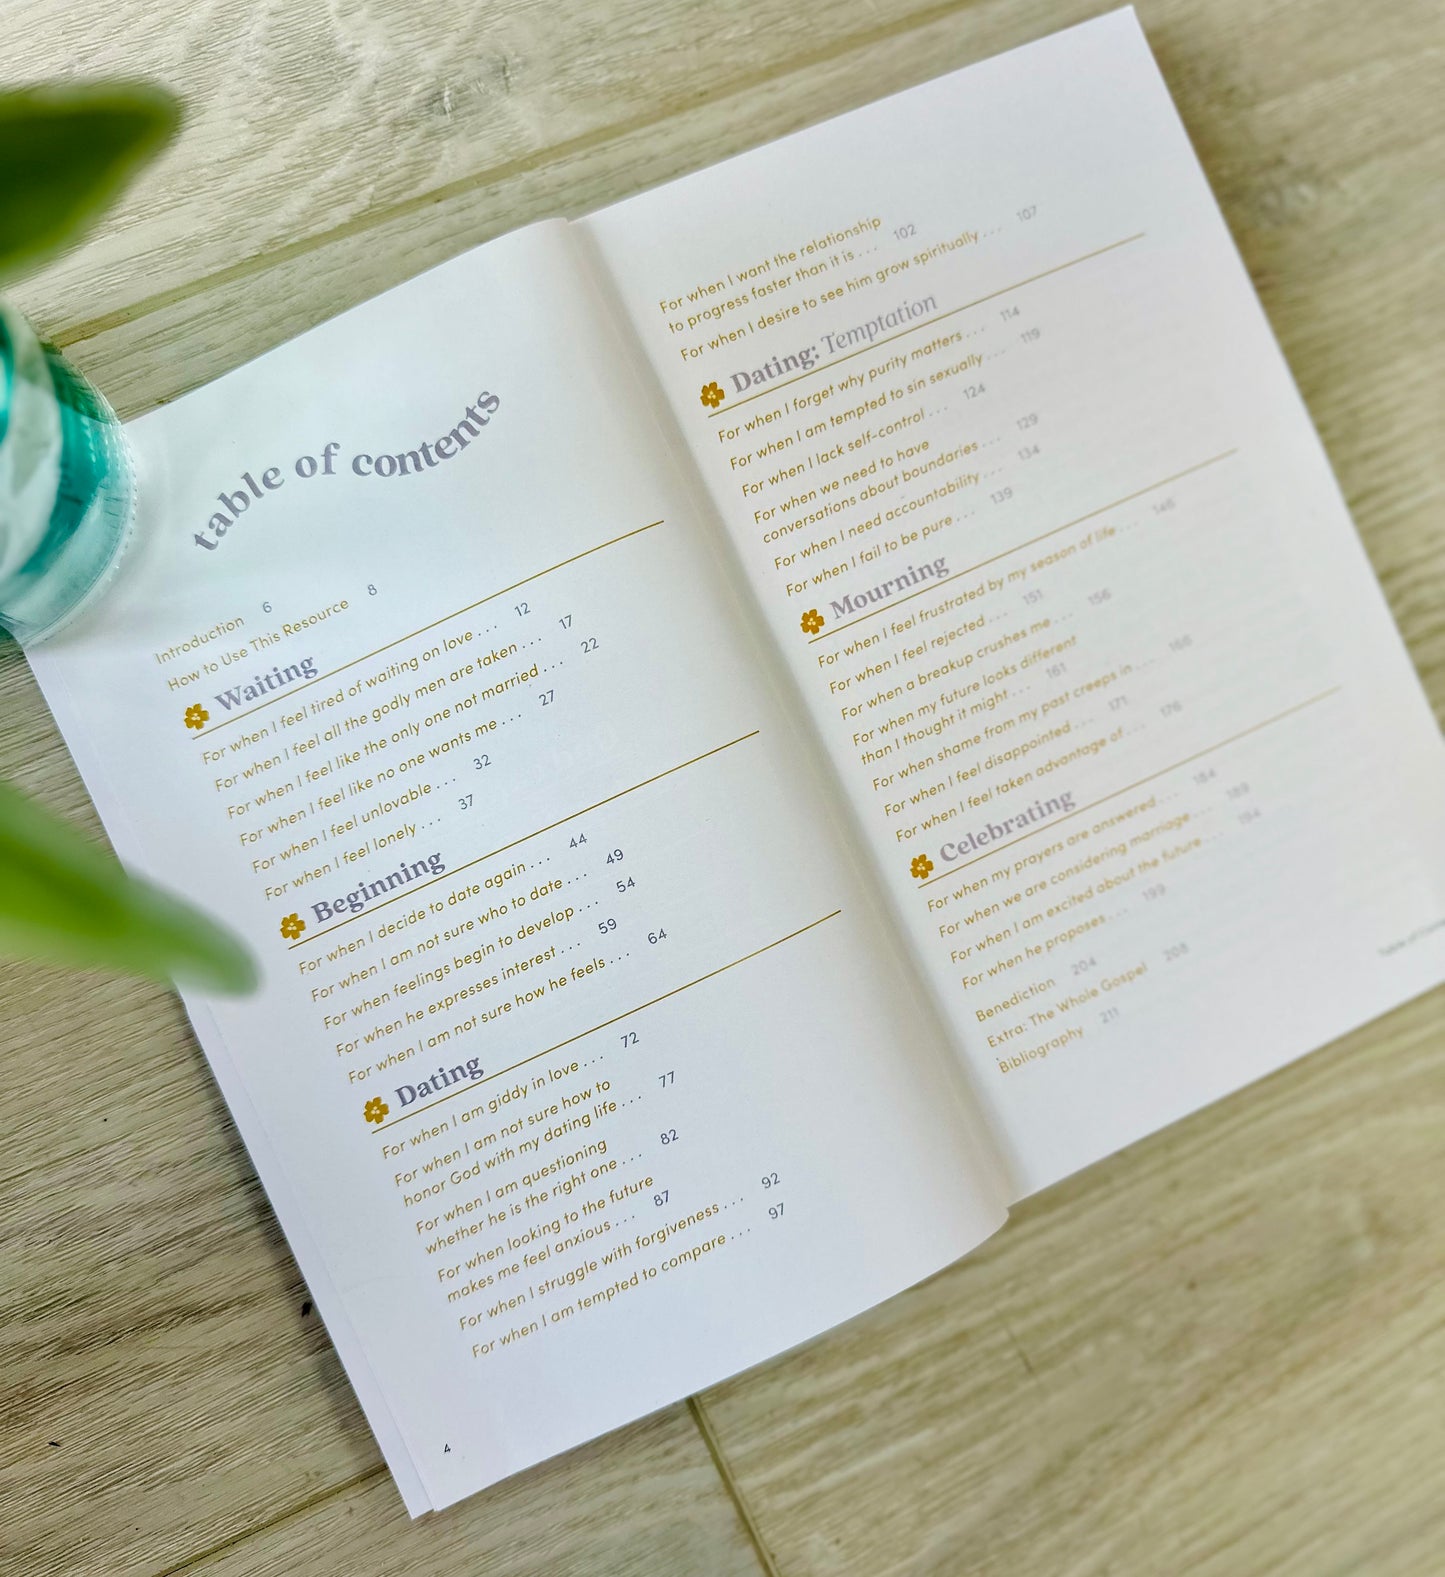 table of contents
Introduction 6
How to Use This Resource 8
Waiting
For when I feel tired of waiting on love . . . 12
For when I feel all the godly men are taken . . . 17
For when I feel like the only one not married . . . 22
For when I feel like no one wants me . . . 27
For when I feel unlovable . . . 32
For when I feel lonely . . . 37
Beginning
For when I decide to date again . . . 44
For when I am not sure who to date . . . 49
For when feelings begin to develop . . . 54
For when he expresses interest . . . 59
For when I am not sure how he feels . . . 64
Dating
For when I am giddy in love . . . 72
For when I am not sure how to
honor God with my dating life . . . 77
For when I am questioning
whether he is the right one . . . 82
For when looking to the future
makes me feel anxious . . . 87
For when I struggle with forgiveness . . . 92
For when I am tempted to compare . . . 97
4
For when I want the relationship
to progress faster than it is . . . 102
For when I desire to see him grow spiritually . . . 107
Dating: Temptation
For when I forget why purity matters . . . 114
For when I am tempted to sin sexually . . . 119
For when I lack self-control . . . 124
For when we need to have
conversations about boundaries . . . 129
For when I need accountability . . . 134
For when I fail to be pure . . . 139
Mourning
For when I feel frustrated by my season of life . . . 146
For when I feel rejected . . . 151
For when a breakup crushes me . . . 156
For when my future looks different
than I thought it might . . . 161
For when shame from my past creeps in . . . 166
For when I feel disappointed . . . 171
For when I feel taken advantage of . . . 176
Celebrating
For when my prayers are answered . . . 184
For when we are considering marriage . . . 189
For when I am excited about the future . . . 194
For when he proposes . . . 199
Benediction 204
Extra: The Whole Gospel 208
Bibliography 211
Table of